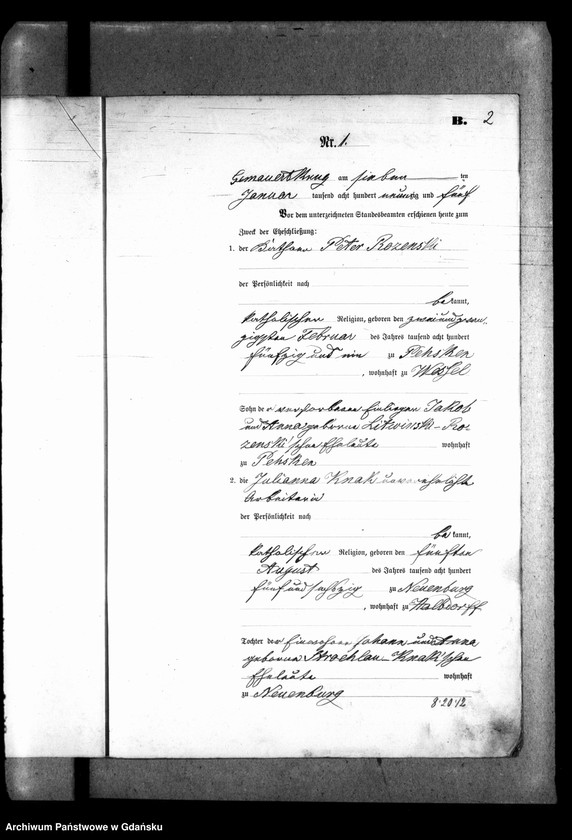 B. 2
Nr. 1.
am sieben ten
Januar tausend acht hundert neunzig und fünf
Vor dem unterzeichneten Standesbeamten erschienen heute zum
Zweck der Eheschließung:
1. der Käthner Peter Rozenski
der Persönlichkeit nach
be kannt,
katholischer Religion, geboren den zweiundzwan-
zigsten Februar des Jahres tausend acht hundert
fünfzig und ein zu Pehsken
, wohnhaft zu Wessel
Sohn der verstorbenen Einlieger Jakob
und Anna geborne Litwinski- Ro-
zenski'schen Eheleute wohnhaft
zu Pehsken
2. die Julianna Knak unverehelichte
Arbeiterin
der Persönlichkeit nach
be kannt,
katholischer Religion, geboren den fünften
August des Jahres tausend acht hundert
fünf und sechzig zu Neuenburg
, wohnhaft zu
Tochter der Einwohner Johann und Anna
geborne Knak'schen
Eheleute wohnhaft
zu Neuenburg
8·20·12
Archiwum Państwowe w Gdańsku